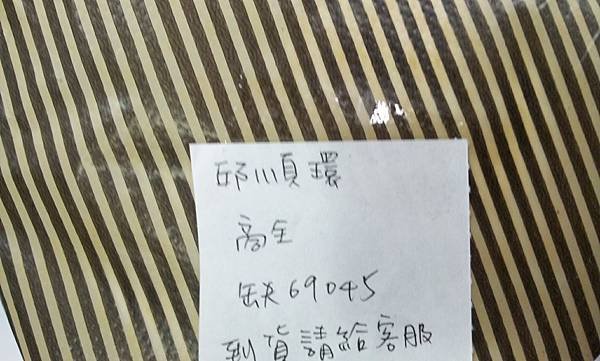 邱順環
高全
缺69045
到貨請給客服